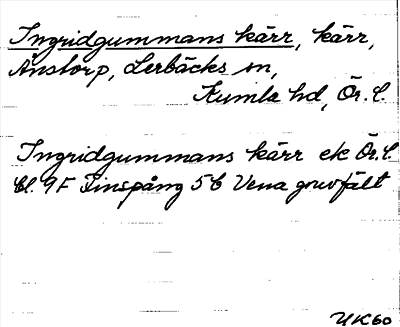 Ingridgummans kärr, kärr,
Ånstorp, Lerbäcks sn,
Kumla hd, Ör. l.
Ingridgummans kärr ek Ör. l.
bl. 9F Finspång 5 C Vena gruvfält
UK60